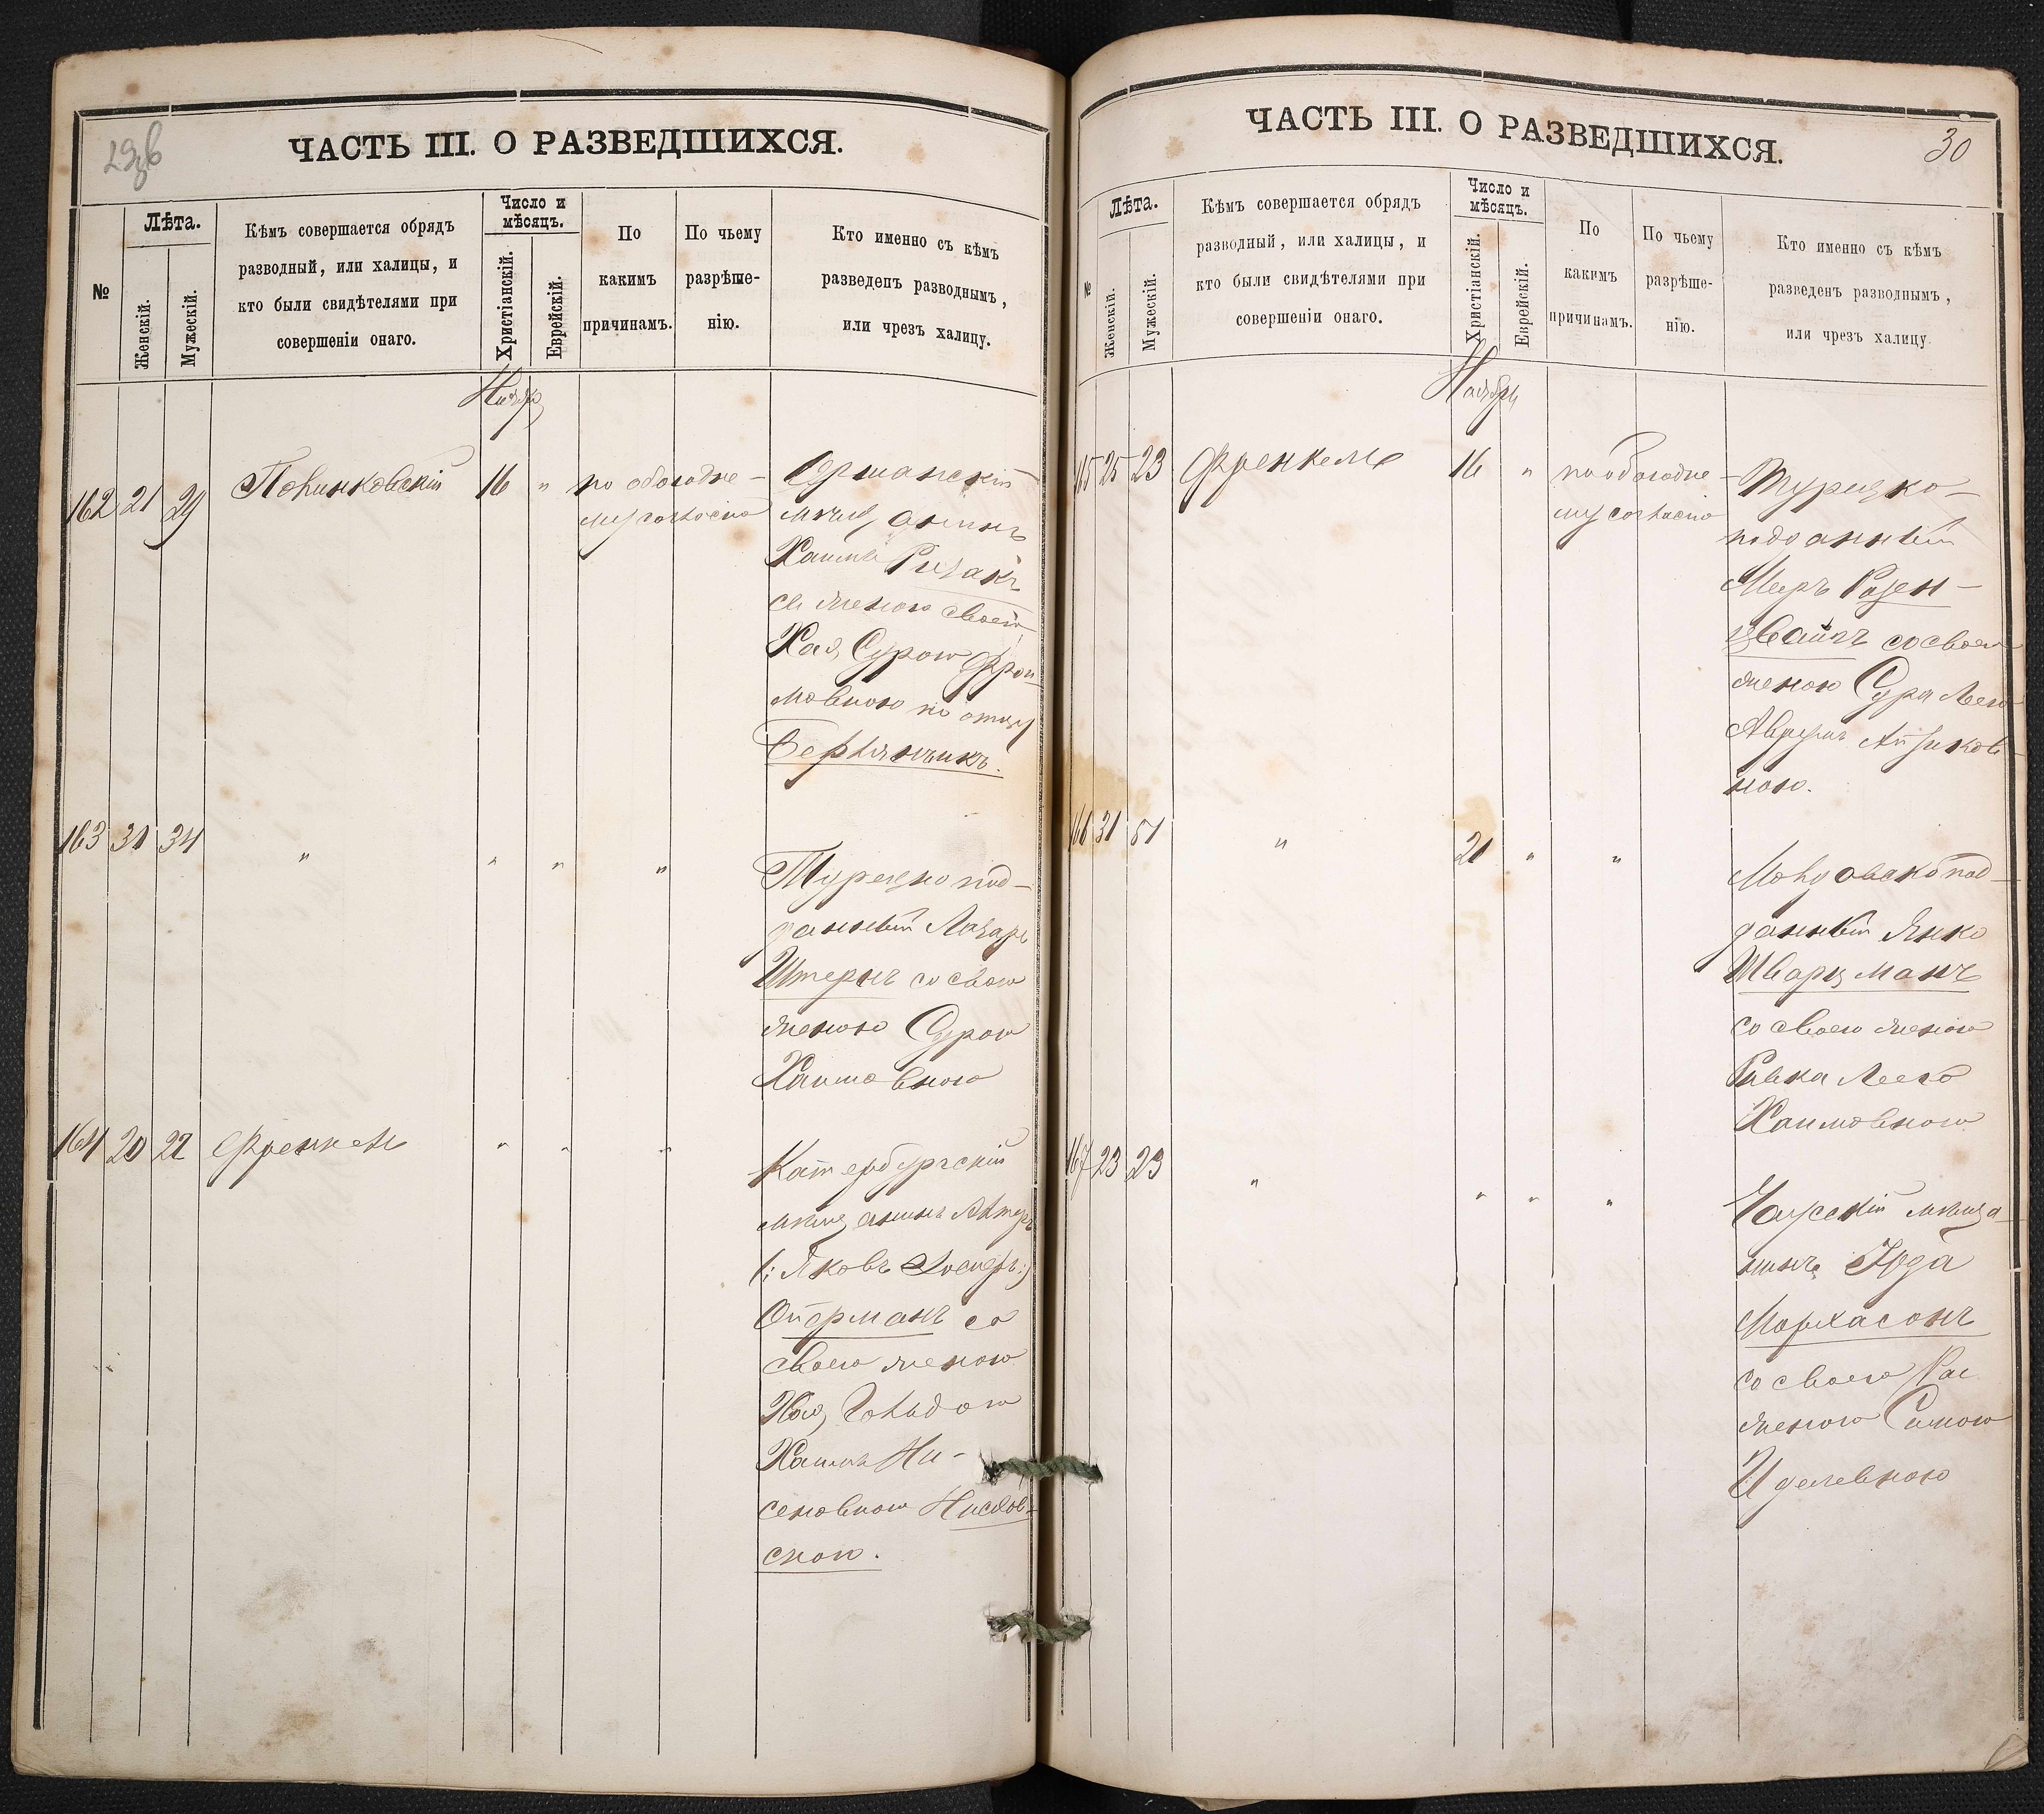 29об
ЧАСТЬ III. О РАЗВЕДШИХСЯ.
№
Лѣта.
Женскій.
Мужескій.
Кѣмъ совершается обрядъ
разводный, или халицы, и
кто были свидѣтелями при
совершеніи онаго.
Число и
мѣсяцъ.
Христіанскій.
Еврейскій.
По
какимъ
причинамъ.
По чьему
разрѣше-
нію.
Кто именно съ кѣмъ
разведенъ разводнымъ,
или чрезъ халицу.
Ноябрь
162 21 29 Полинковскій 16 " по обоюдно-
му согласію
мѣщанинъ
Хаимъ
съ женою своею
Хая Сурою Фрои-
мовною по отцу
163 31 34 " " " "
Турецкопод-
данный Лазарь
Штернъ со своею
женою Сурою
Хаимовною
164 20 22 Френкель " " "
Катербургскій
мѣщанинъ Алтеръ
(: Яковъ Іосифъ :)
Оперманъ со
своею женою
Хая Гольдою
Хаимъ Ни-
сеновною
скою.
30
ЧАСТЬ III. О РАЗВЕДШИХСЯ.
№
Лѣта.
Женскій.
Мужескій.
Кѣмъ совершается обрядъ
разводный, или халицы, и
кто были свидѣтелями при
совершеніи онаго.
Число и
мѣсяцъ.
Христіанскій.
Еврейскій.
По
какимъ
причинамъ.
По чьему
разрѣше-
нію.
Кто именно съ кѣмъ
разведенъ разводнымъ,
или чрезъ халицу
Ноябрь
165 25 23 Френкель 16 " по обоюдно-
му согласію
Турецко-
подданный
Меръ Розен-
цвайгъ со своею
женою Сура Леею
ною.
166 31 51 " 21 " "
Молдовскопод-
данный Янко
Шварцманъ
со своею женою
Ривка Леею
Хаимовною
167 23 23 " " " "
мѣща-
нинъ Юда
Мархасонъ
со своею
женою Симою
Иделевною